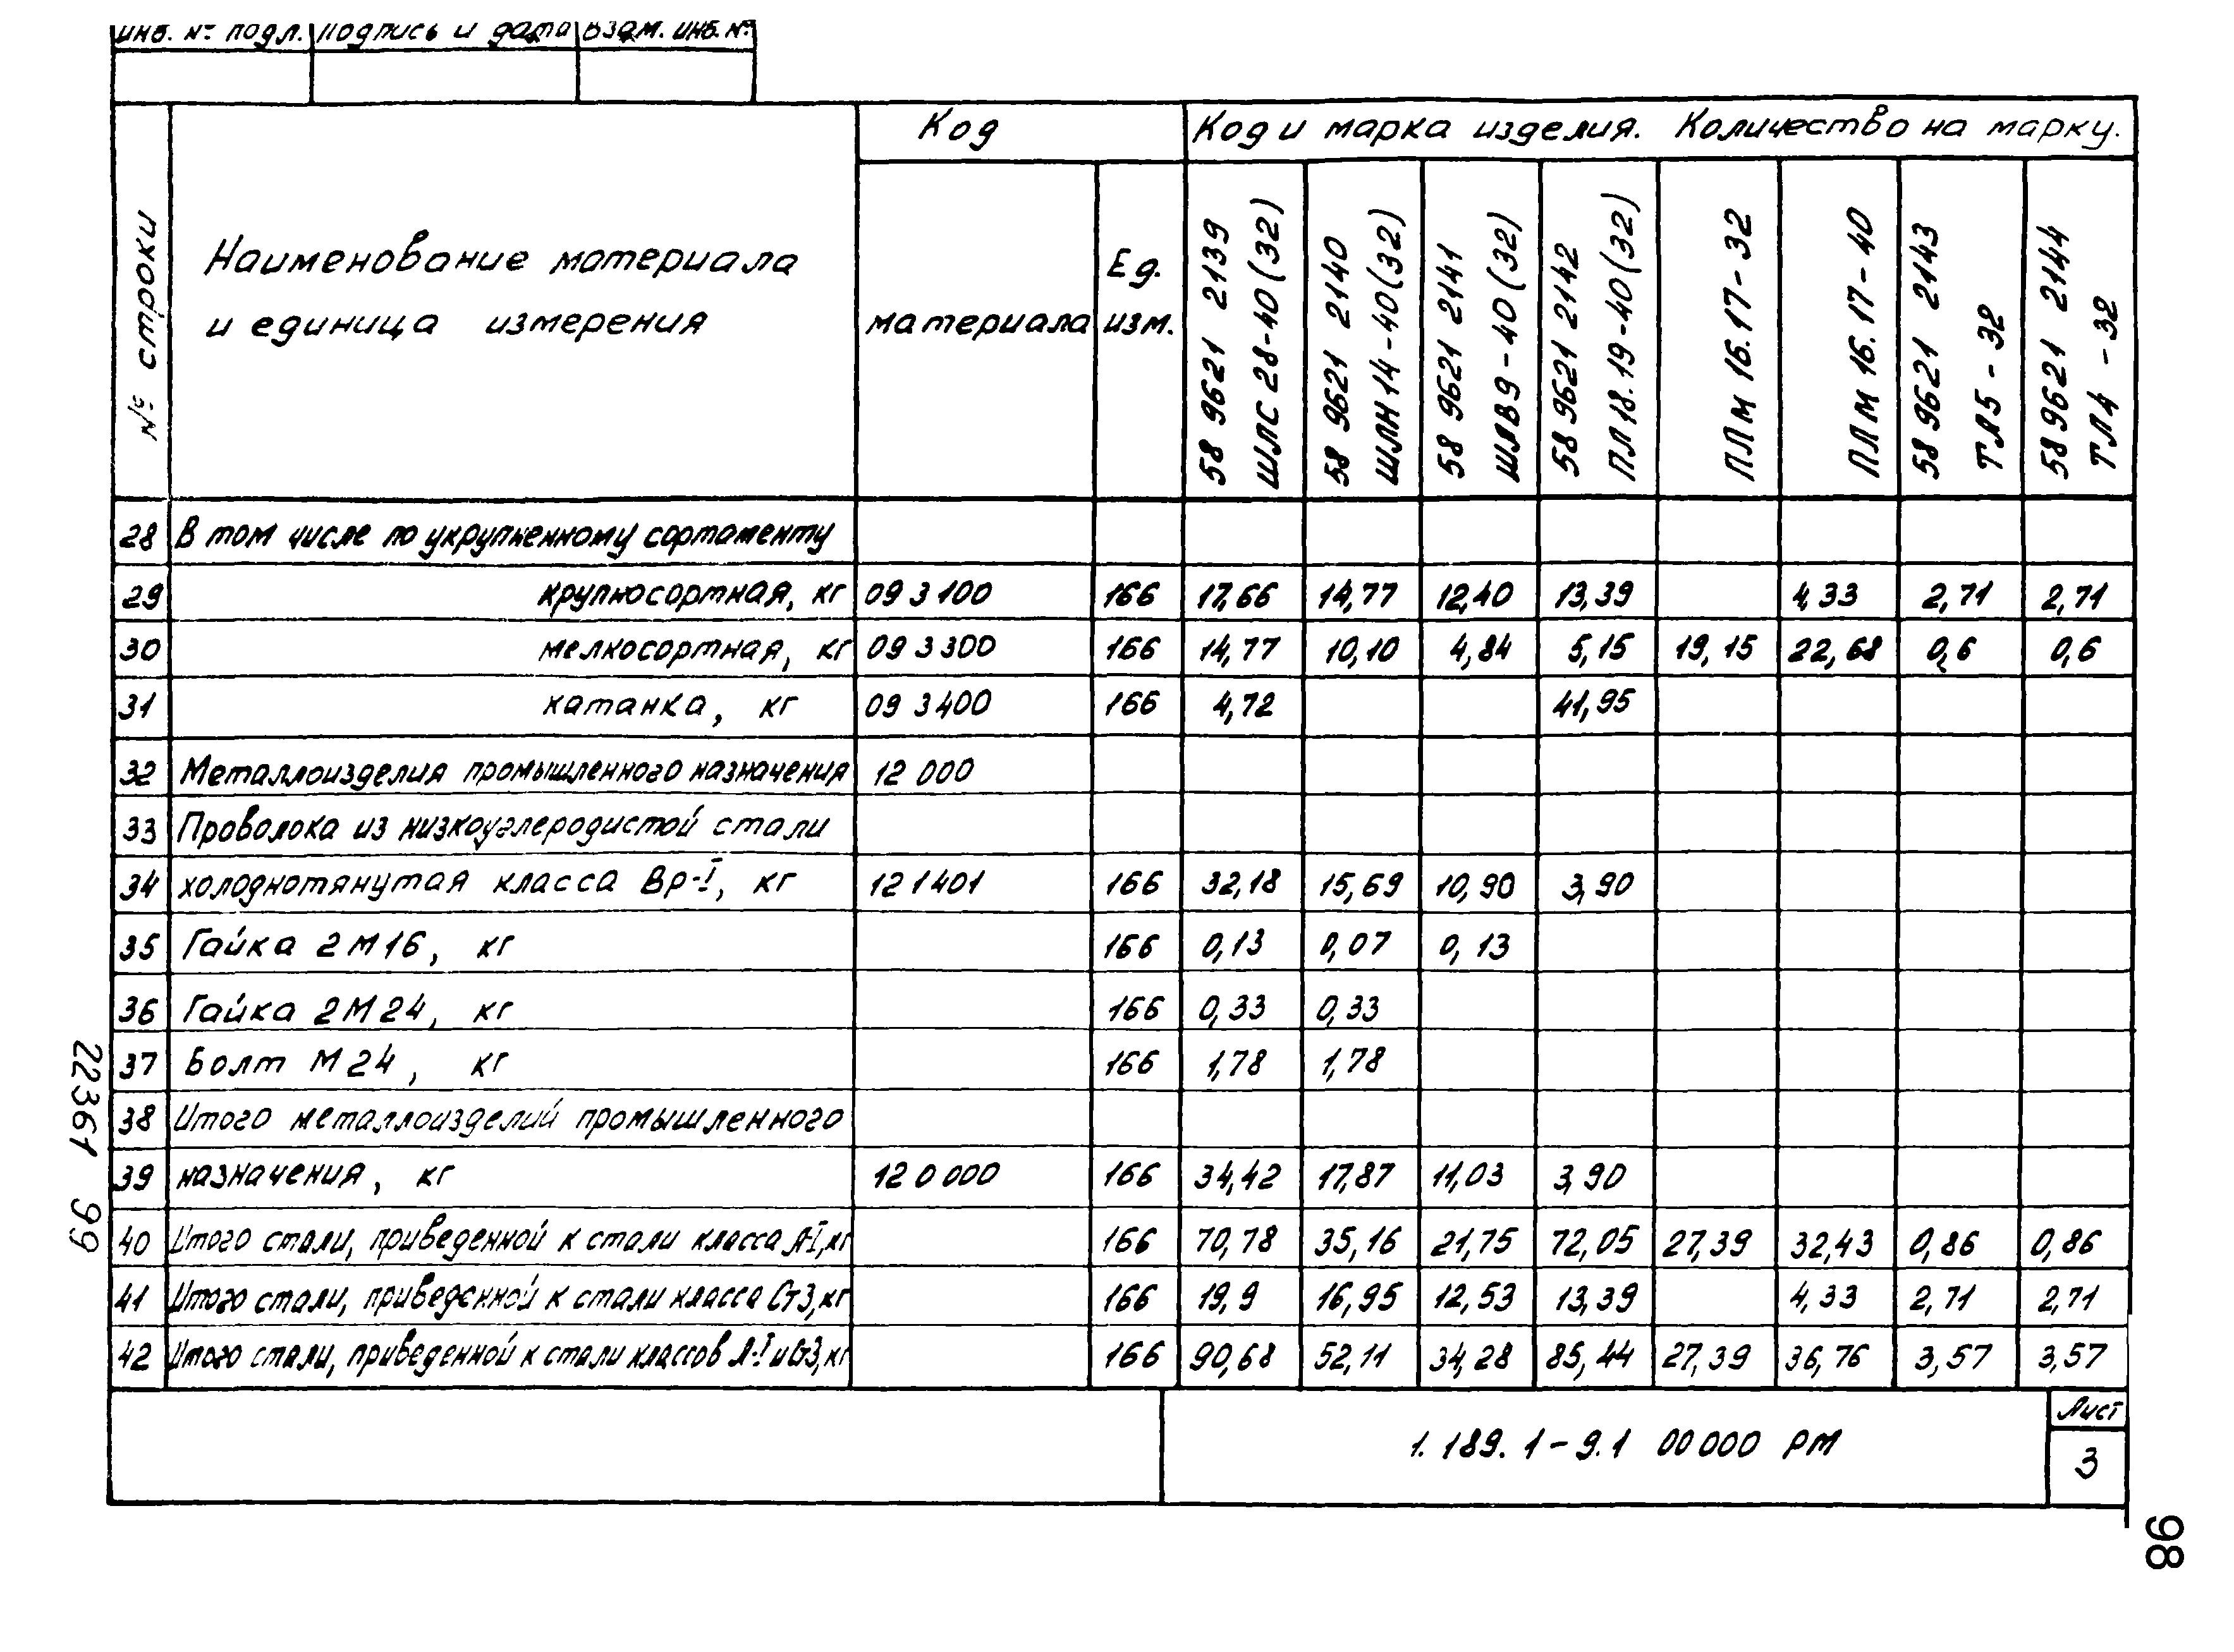 инв. № подл. подпись и дата взам. инв. №
Код Код и марка изделия. Количество на марку.
№ строки
Наименование материала
и единица измерения
материала
Ед.
изм.
58 9621 2139
ШЛС 28-40 (32)
58 9621 2140
ШЛН 14-40 (32)
58 9621 2141
ШЛВ 9-40 (32)
58 9621 2142
ПЛ 18.19-40 (32)
ПЛм 16.17-32
ПЛм 16.17-40
58 9621 2143
ТЛ5-32
58 9621 2144
ТЛ4-32
28 В том числе по укрупненному сортаменту
29 крупносортная, кг 09 3100 166 17,66 14,77 12,40 13,39 4,33 2,71 2,71
30 мелкосортная, кг 09 3300 166 14,77 10,10 4,84 5,15 19,15 22,68 0,6 0,6
31 катанка, кг 09 3400 166 4,72 41,95
32 Металлоизделия промышленного назначения 12 000
33 Проволока из низкоуглеродистой стали
34 холоднотянутая класса Вр-I, кг 12 1401 166 32,18 15,69 10,90 3,90
35 Гайка 2М16, кг 166 0,13 0,07 0,13
36 Гайка 2М24, кг 166 0,33 0,33
37 Болт М24, кг 166 1,78 1,78
38 Итого металлоизделий промышленного
39 назначения, кг 12 0000 166 34,42 17,87 11,03 3,90
40 Итого стали, приведенной к стали класса А-I, кг 166 70,78 35,16 21,75 72,05 27,39 32,43 0,86 0,86
41 Итого стали, приведенной к стали класса Ст3, кг 166 19,9 16,95 12,53 13,39 4,33 2,71 2,71
42 Итого стали, приведенной к стали классов А-I и Ст3, кг 166 90,68 52,11 34,28 85,44 27,39 36,76 3,57 3,57
1.189.1-9.1 00000 РМ
Лист
3
22361 99
98